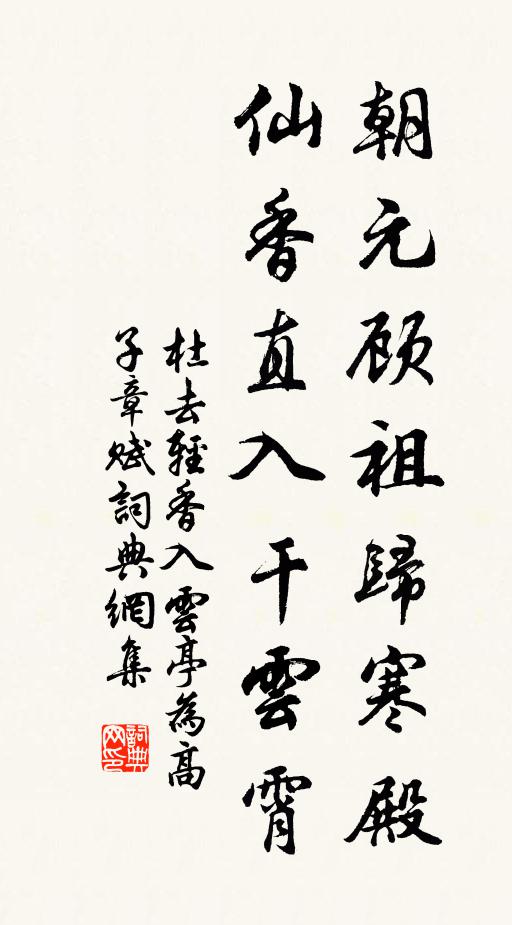 朝元顾祖歸寒殿
仙香直入干雲霄
杜去輕香入雲亭為高
子章赋詞典網集
詞典网印